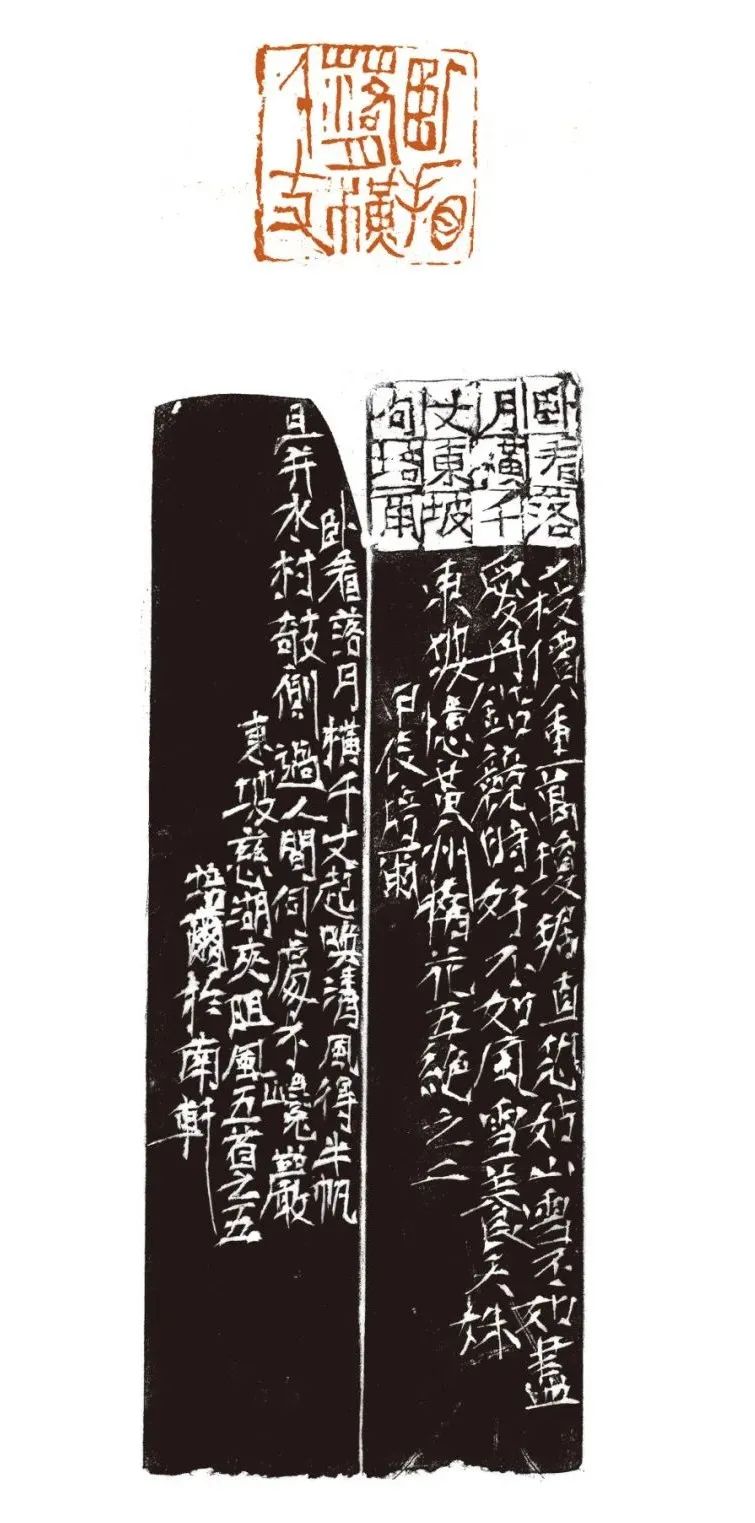 臥看
落月橫
千丈
卧看落
月橫千
丈東坡
句培爾
一枝價重萬瓊琚直恐姑山雪不如盡
愛丹鉛競時好不如風雪養天姝
東坡憶黃州梅花五絕之二
甲辰培爾
卧看落月橫千丈起喚清風得半帆
且并水村欹側過人間何處不巉巖
東坡慈湖夾阻風五首之五
培爾於南軒